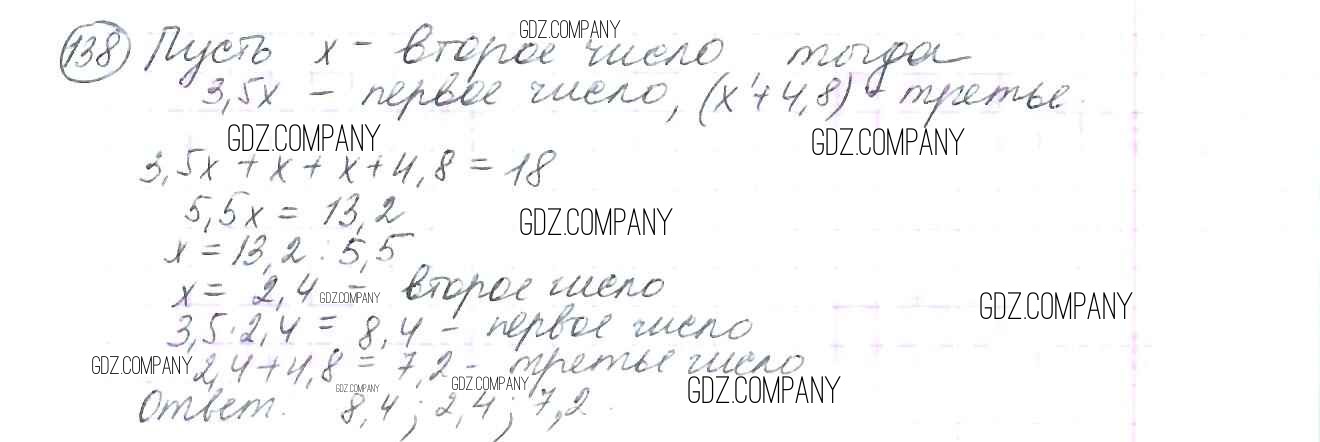 GDZ.COMPANY
138 Пусть x - второе число тогда
3,5x - первое число, (x+4,8) - третье.
GDZ.COMPANY GDZ.COMPANY
3,5x + x + x + 4,8 = 18
5,5x = 13,2
GDZ.COMPANY
x = 13,2 : 5,5
x = 2,4 - второе число
GDZ.COMPANY GDZ.COMPANY
3,5·2,4 = 8,4 - первое число
GDZ.COMPANY 2,4+4,8 = 7,2 - третье число
GDZ.COMPANY GDZ.COMPANY GDZ.COMPANY
Ответ. 8,4; 2,4; 7,2.